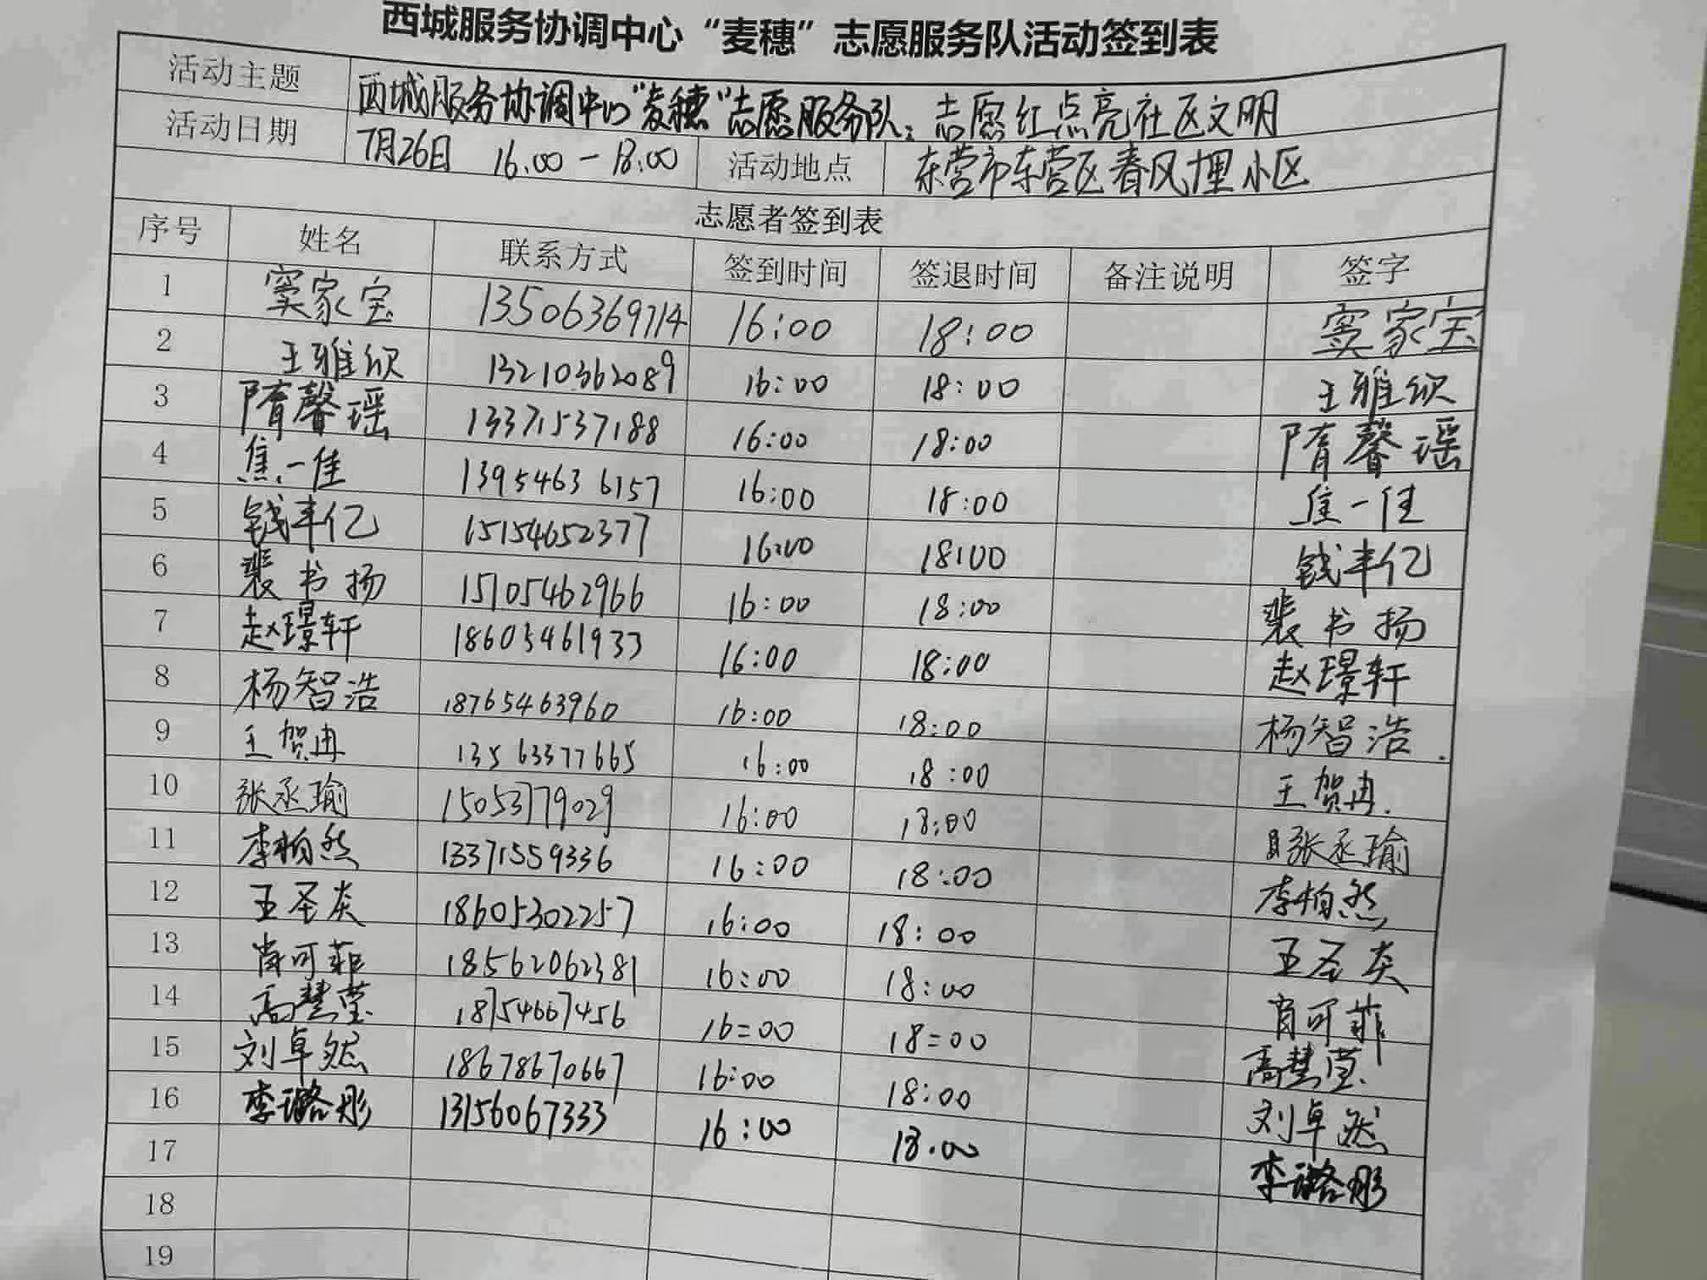 西城服务协调中心“麦穗”志愿服务队活动签到表
活动主题 西城服务协调中心“麦穗”志愿服务队：志愿红点亮社区文明
活动日期 7月26日 16:00-18:00 活动地点 东营市东营区春风里小区
志愿者签到表
序号 姓名 联系方式 签到时间 签退时间 备注说明 签字
1 窦家宝 13506369714 16:00 18:00 窦家宝
2 王雅欣 13210362089 16:00 18:00 王雅欣
3 隋馨瑶 13371537188 16:00 18:00 隋馨瑶
4 焦一佳 13954636157 16:00 18:00 焦一佳
5 钱丰亿 15154652377 16:00 18:00 钱丰亿
6 裴书扬 15105462966 16:00 18:00 裴书扬
7 赵璟轩 18605461933 16:00 18:00 赵璟轩
8 杨智浩 18765463960 16:00 18:00 杨智浩
9 王贺冉 13563377665 16:00 18:00 王贺冉
10 张丞瑜 15053779029 16:00 18:00 张丞瑜
11 李柏然 13371559336 16:00 18:00 李柏然
12 王圣炎 18605302257 16:00 18:00 王圣炎
13 肖可菲 18562062381 16:00 18:00 肖可菲
14 高慧莹 18754667456 16:00 18:00 高慧莹
15 刘卓然 18678670667 16:00 18:00 刘卓然
16 李璐彤 13156067333 16:00 18:00 李璐彤
17
18
19